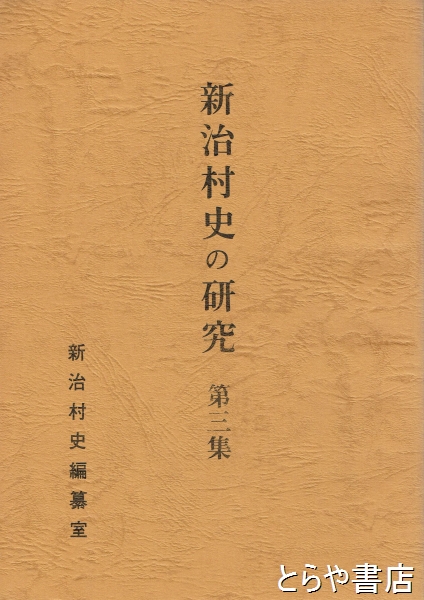 新治村史の研究 第三集
新治村史編纂室
とらや書店